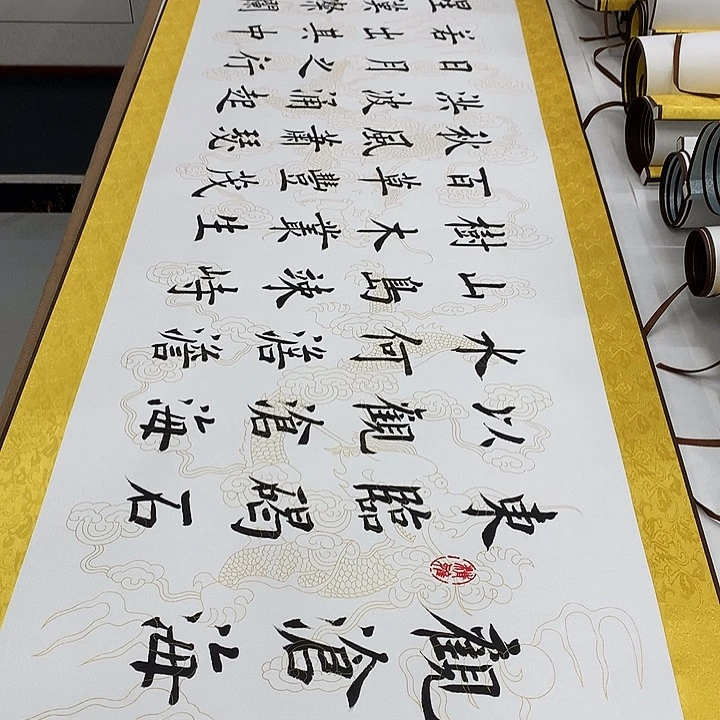 觀滄海
東臨碣石
以觀滄海
水何澹澹
山島竦峙
樹木叢生
百草豐茂
秋風蕭瑟
洪波涌起
日月之行
若出其中
星漢燦爛